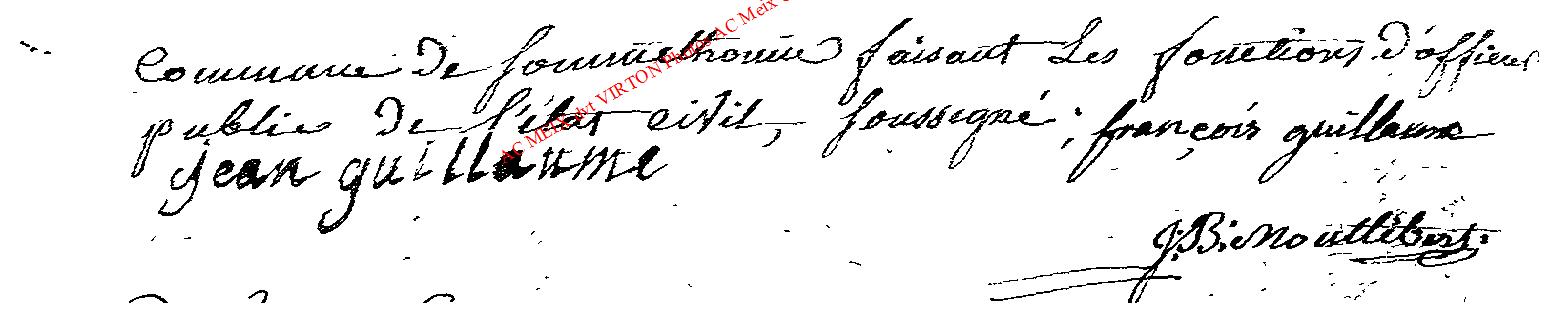 Commune de Sommethonne faisant Les fonctions d'officier
public de l'état civil, soussigné; françois guillaume
jean guillaume
J: B:
AC MEIX dvt VIRTON Photos AC Meix